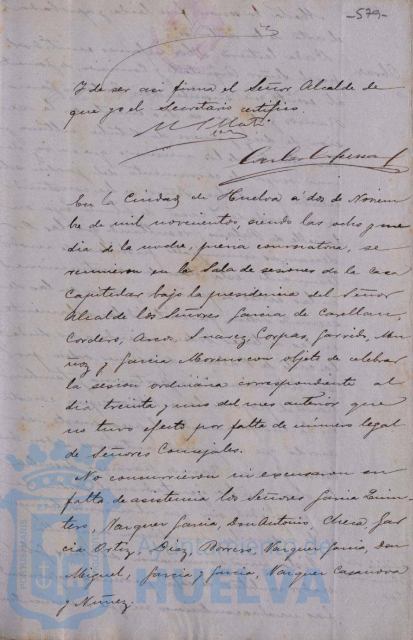 -579-
Y de ser asi firma el Señor Alcalde de
que yo el Secretario certifico.
En la Ciudad de Huelva á dos de Noviem
bre de mil novecientos, siendo las ocho y me
dia de la noche, previa convocatoria, se
reunieron en la Sala de sesiones de la casa
Capitular bajo la presidencia del Señor
Alcalde los Señores Garcia de Castellar,
Cordero, Suarez, Corpas, Garrido, Mu
ñoz y Garcia Moreno con objeto de celebrar
la sesion ordinaria correspondiente al
dia treinta y uno del mes anterior que
no tuvo efecto por falta de número legal
de Señores Concejales.
No concurrieron ni excusaron su
falta de asistencia los Señores Garcia Quin
tero, Vazquez Garcia, Don Antonio, Gar
cia Ortiz, Diaz, Borrero, Vazquez Garcia, Don
Miguel, Garcia y Garcia, Vazquez Casanova
y Nuñez.
Ayuntamiento de
HUELVA